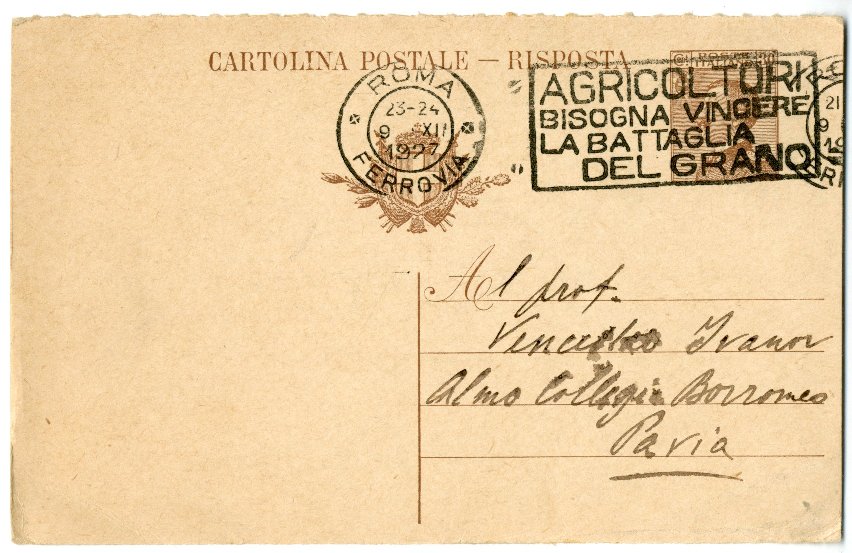 CARTOLINA POSTALE — RISPOSTA
ROMA
23-24
9 XII
1927
FERROVIA
AGRICOLTORI
BISOGNA VINCERE
LA BATTAGLIA
DEL GRANO
21
9
Al prof.
Venceslao Ivanov
Almo Collegio Borromeo
Pavia